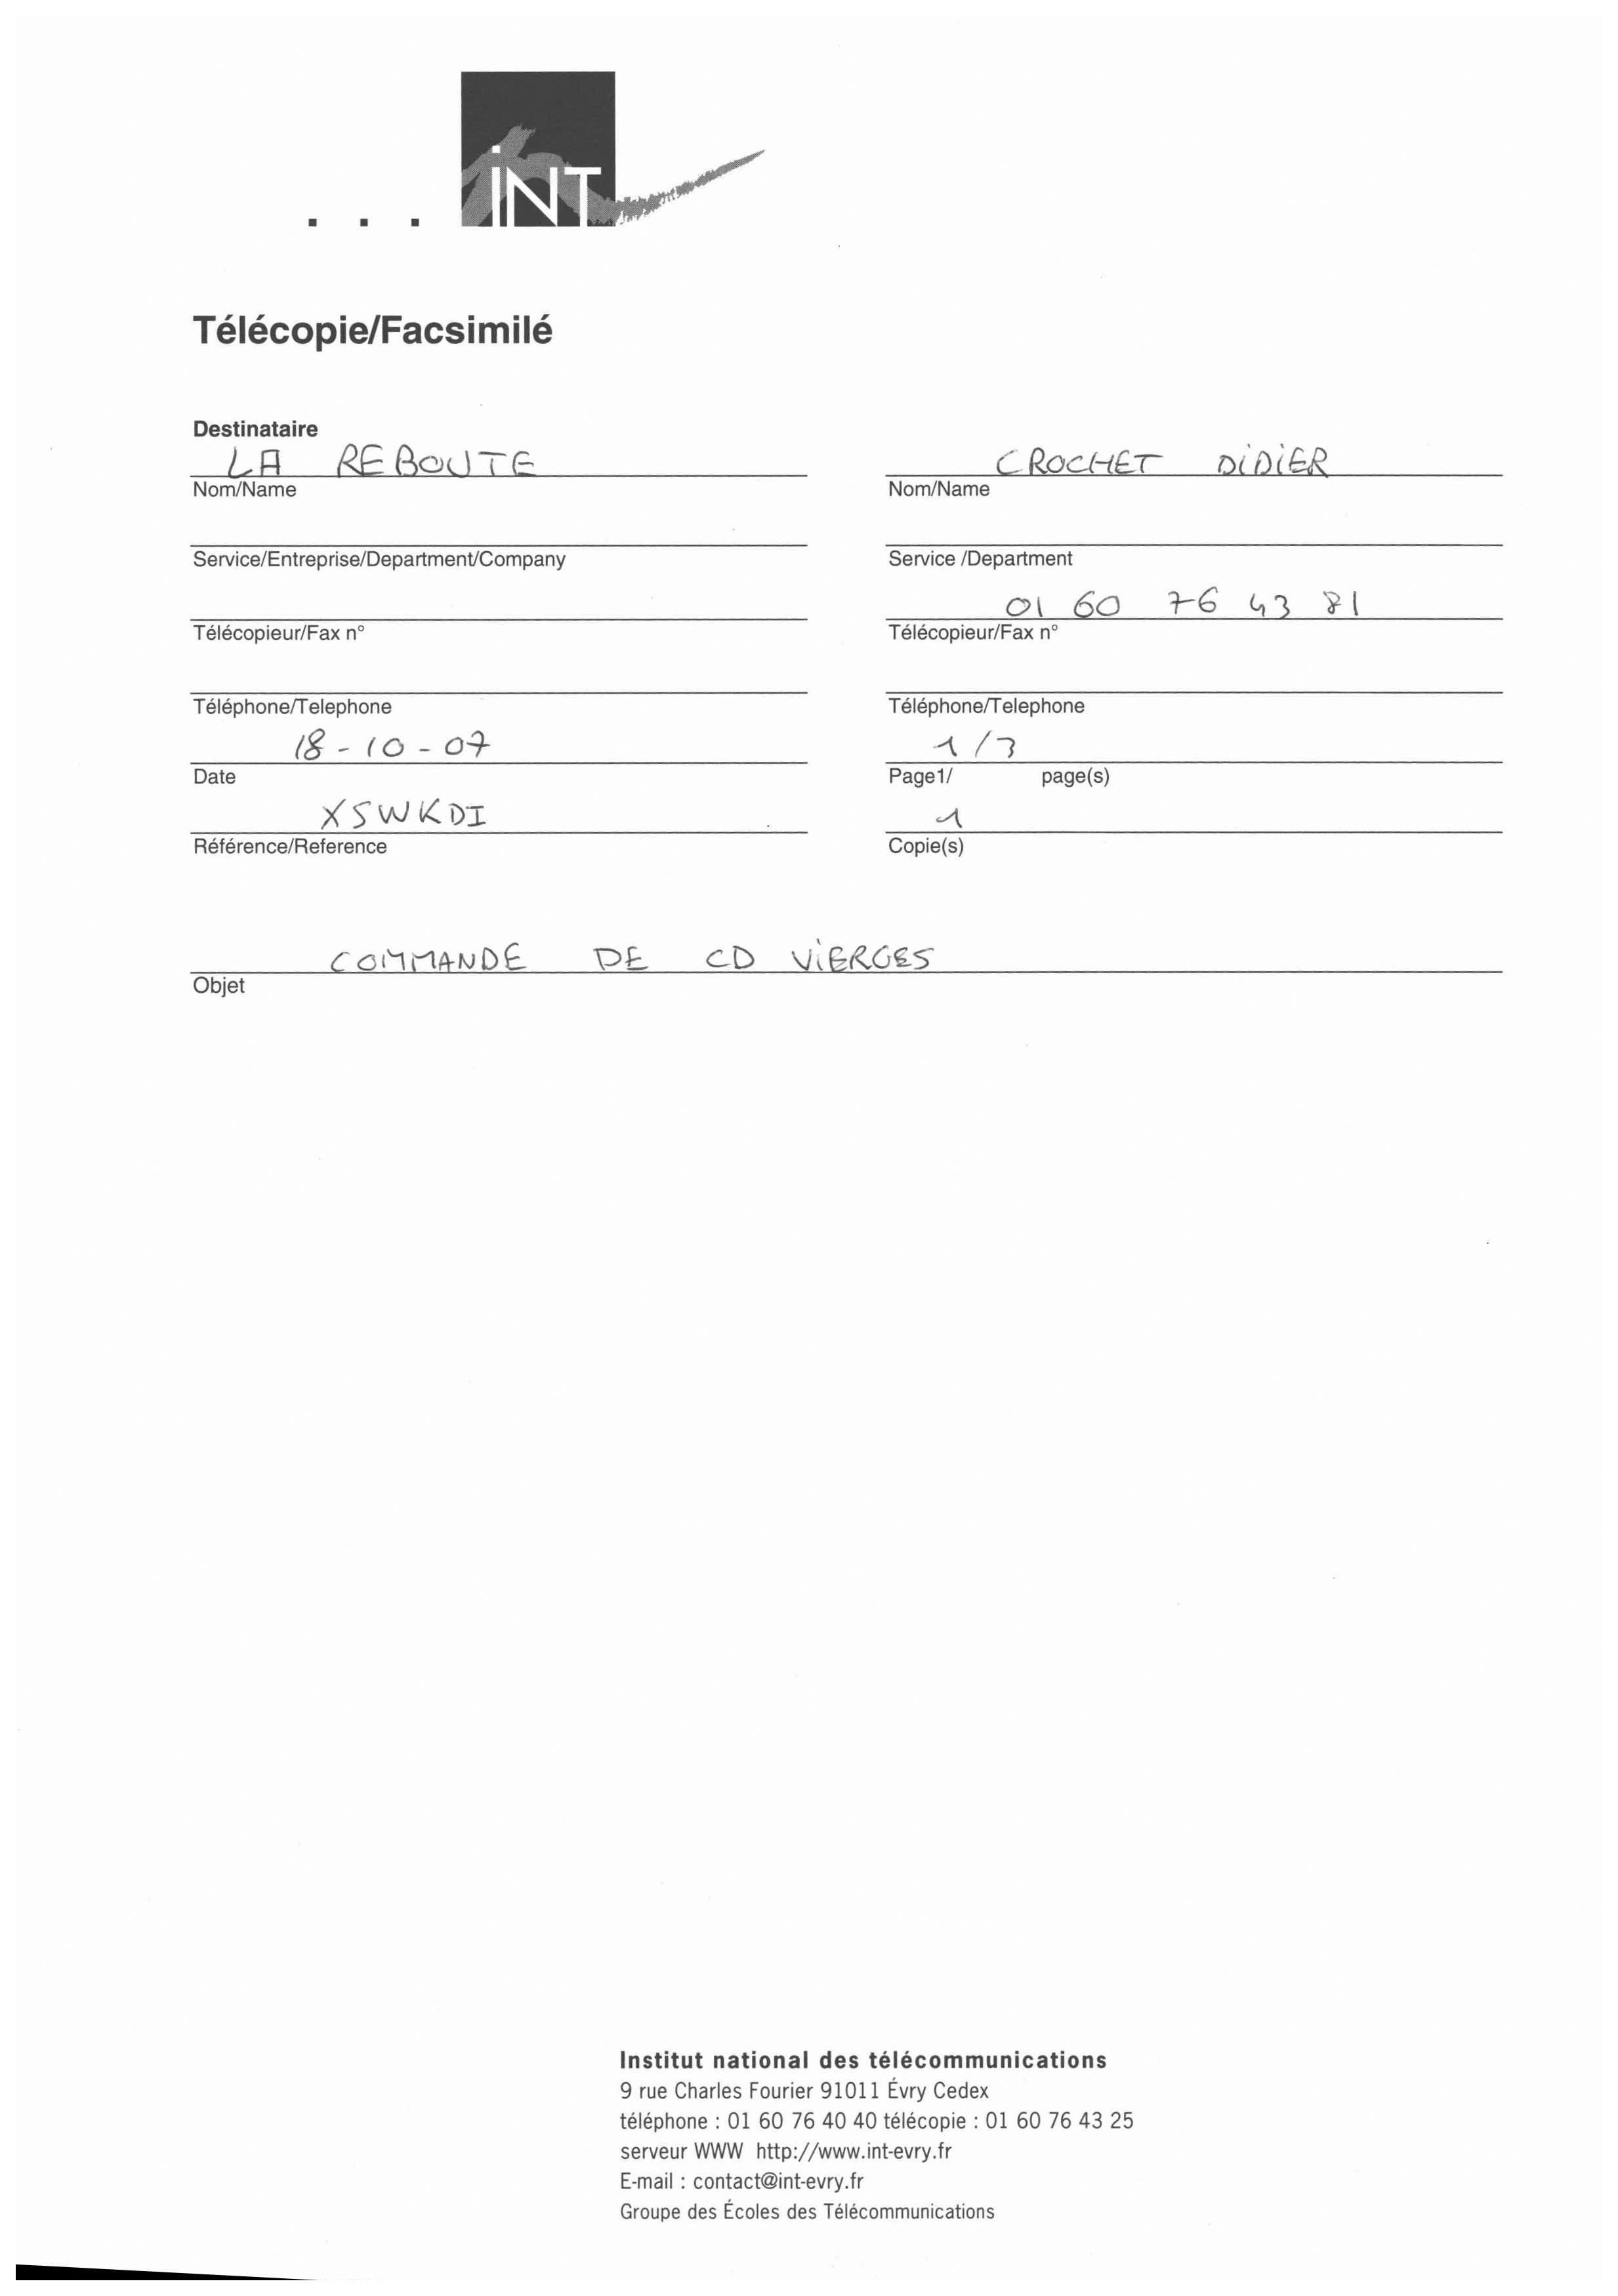 iNT
Télécopie/Facsimilé
Destinataire
LA REBOUTE
Nom/Name
Service/Entreprise/Department/Company
Télécopieur/Fax n°
Téléphone/Telephone
18-10-07
Date
XSWKDI
Référence/Reference
CROCHET DiDiER
Nom/Name
Service /Department
01 60 76 43 81
Télécopieur/Fax n°
Téléphone/Telephone
1/3
Page1/ page(s)
1
Copie(s)
COMMANDE DE CD ViERGES
Objet
Institut national des télécommunications
9 rue Charles Fourier 91011 Évry Cedex
téléphone : 01 60 76 40 40 télécopie : 01 60 76 43 25
serveur WWW http://www.int-evry.fr
E-mail : contact@int-evry.fr
Groupe des Écoles des Télécommunications